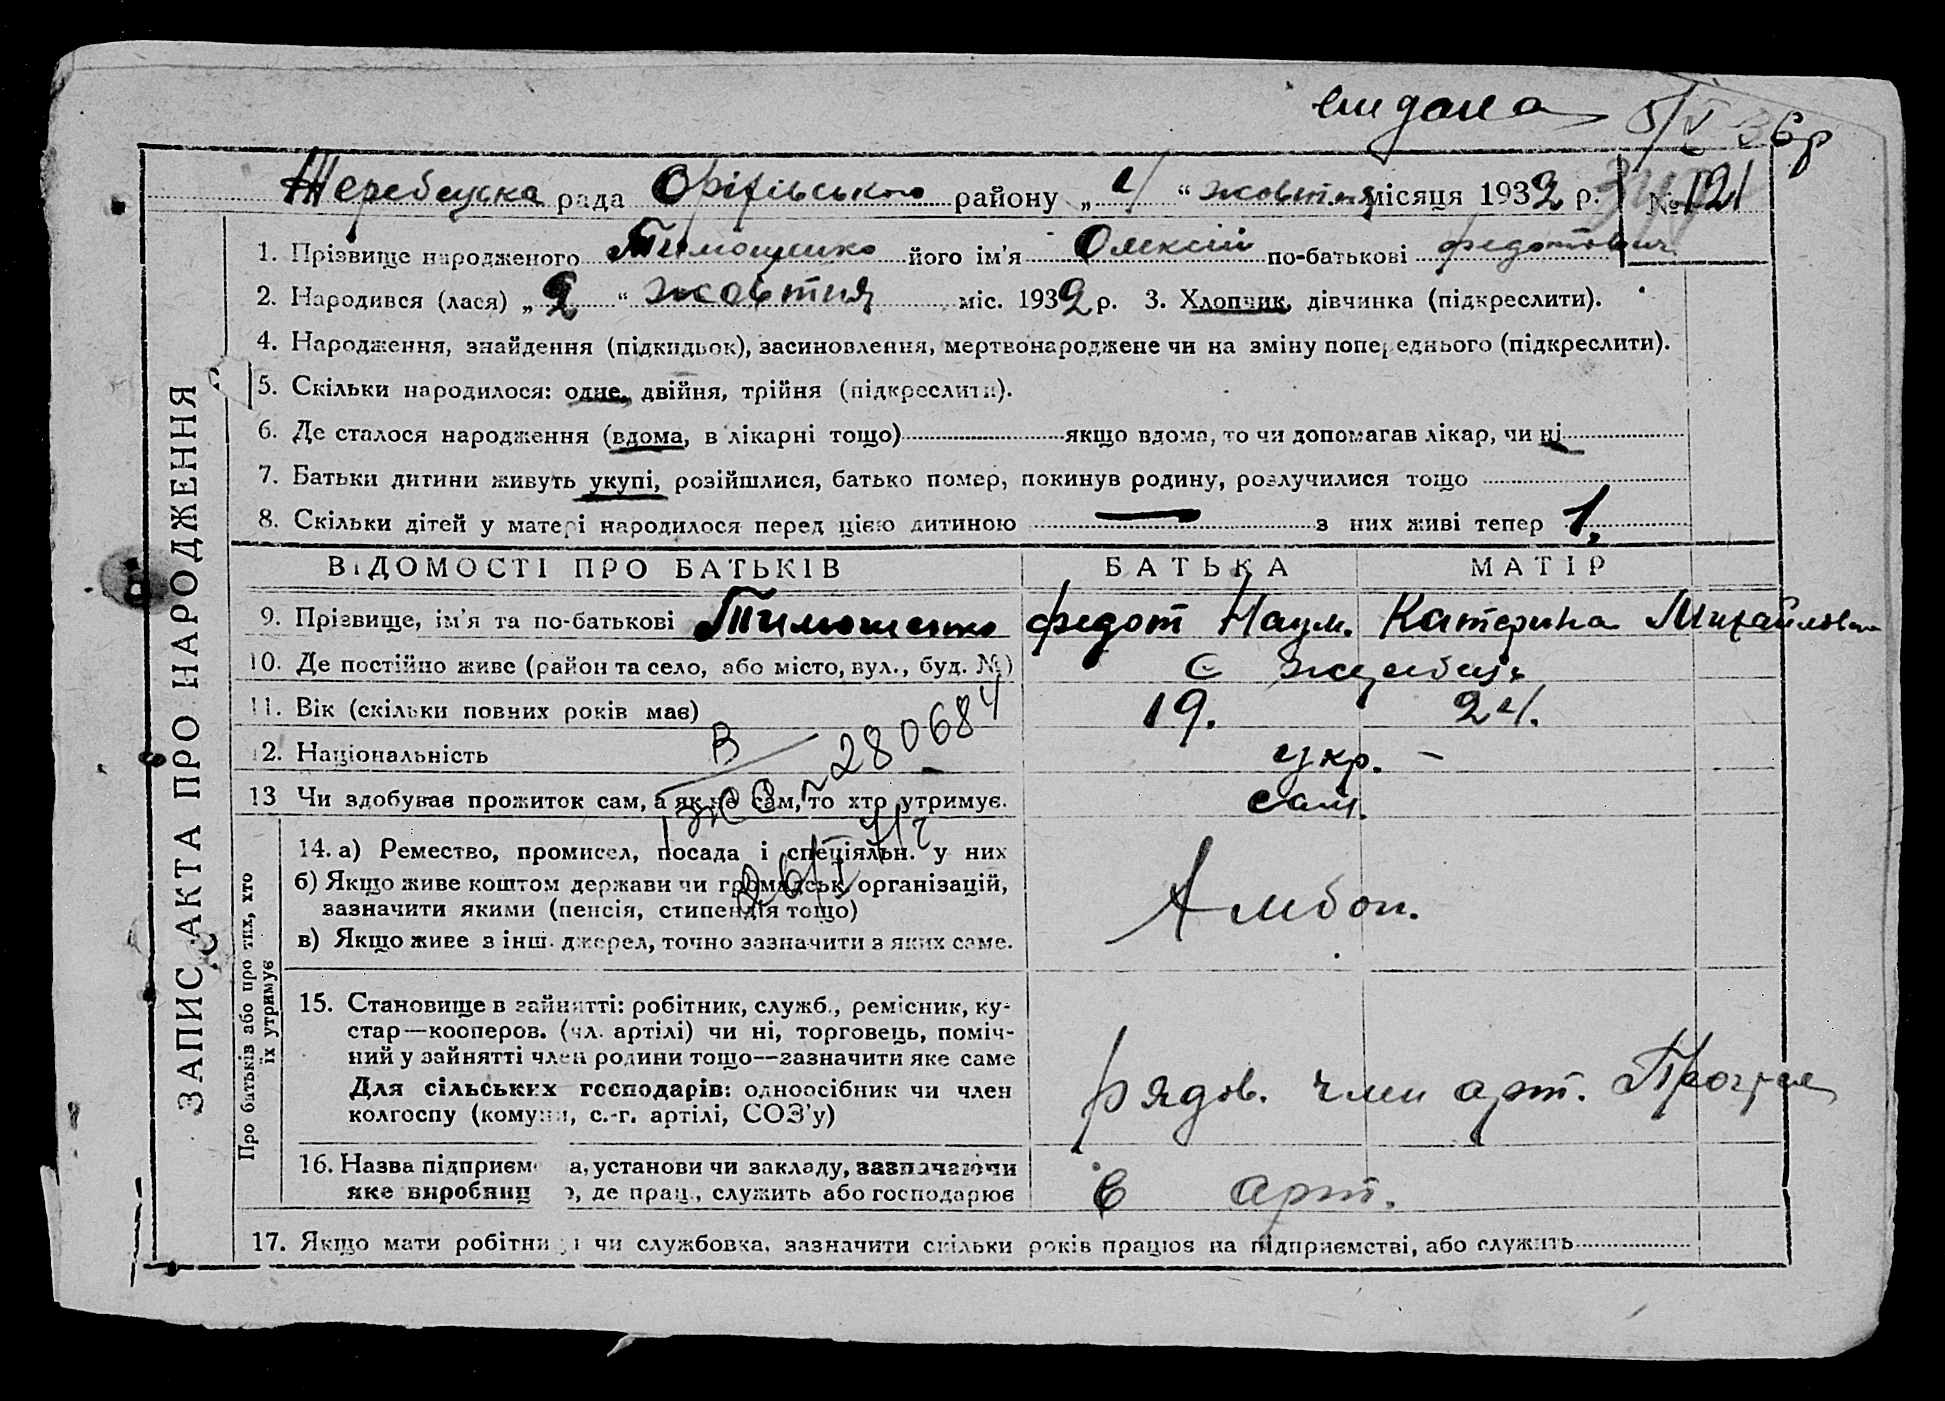 видана 5/V 36р
Жеребецька рада Оріхівського району „4“ жовтня місяця 1932 р. № 121
1. Прізвище народженого Тимошенко його ім'я Олексій по-батькові федотович
2. Народився (лася) „2“ жовтня міс. 1932 р. 3. Хлопчик, дівчинка (підкреслити).
4. Народження, знайдення (підкидьок), засиновлення, мертвонароджене чи на зміну попереднього (підкреслити).
5. Скільки народилося: одне, двійня, трійня (підкреслити).
6. Де сталося народження (вдома, в лікарні тощо) якщо вдома, то чи допомагав лікар, чи ні
7. Батьки дитини живуть укупі, розійшлися, батько помер, покинув родину, розлучилися тощо
8. Скільки дітей у матері народилося перед цією дитиною — з них живі тепер 1.
ЗАПИС АКТА ПРО НАРОДЖЕННЯ
ВІДОМОСТІ ПРО БАТЬКІВ БАТЬКА МАТІР
9. Прізвище, ім'я та по-батькові Тимошенко федот Наум. Катерина Михайловна
10. Де постійно живе (район та село, або місто, вул., буд. №) с
11. Вік (скільки повних років має) 19. 24.
12. Національність укр. –
13 Чи здобував прожиток сам, а як не сам, то хто утримує. сам.
В
280684
Про батьків або про тих, хто
їх утримує
14. а) Ремество, промисел, посада і спеціяльн. у них
б) Якщо живе коштом держави чи громадськ. організацій,
зазначити якими (пенсія, стипендія тощо)
в) Якщо живе з інш. джерел, точно зазначити з яких саме.
15. Становище в зайнятті: робітник, служб., ремісник, ку-
стар—кооперов. (чл. артілі) чи ні, торговець, поміч-
ний у зайнятті член родини тощо—зазначити яке саме
Для сільських господарів: одноосібник чи член
колгоспу (комуни, с.-г. артілі, СОЗ'у)
рядов. член арт.
16. Назва підприєм а, установи чи закладу, зазначаючи
яке виробниц о, де прац., служить або господарює
в арт.
17. Якщо мати робітниця чи службовка, зазначити скільки років працює на підприємстві, або служить